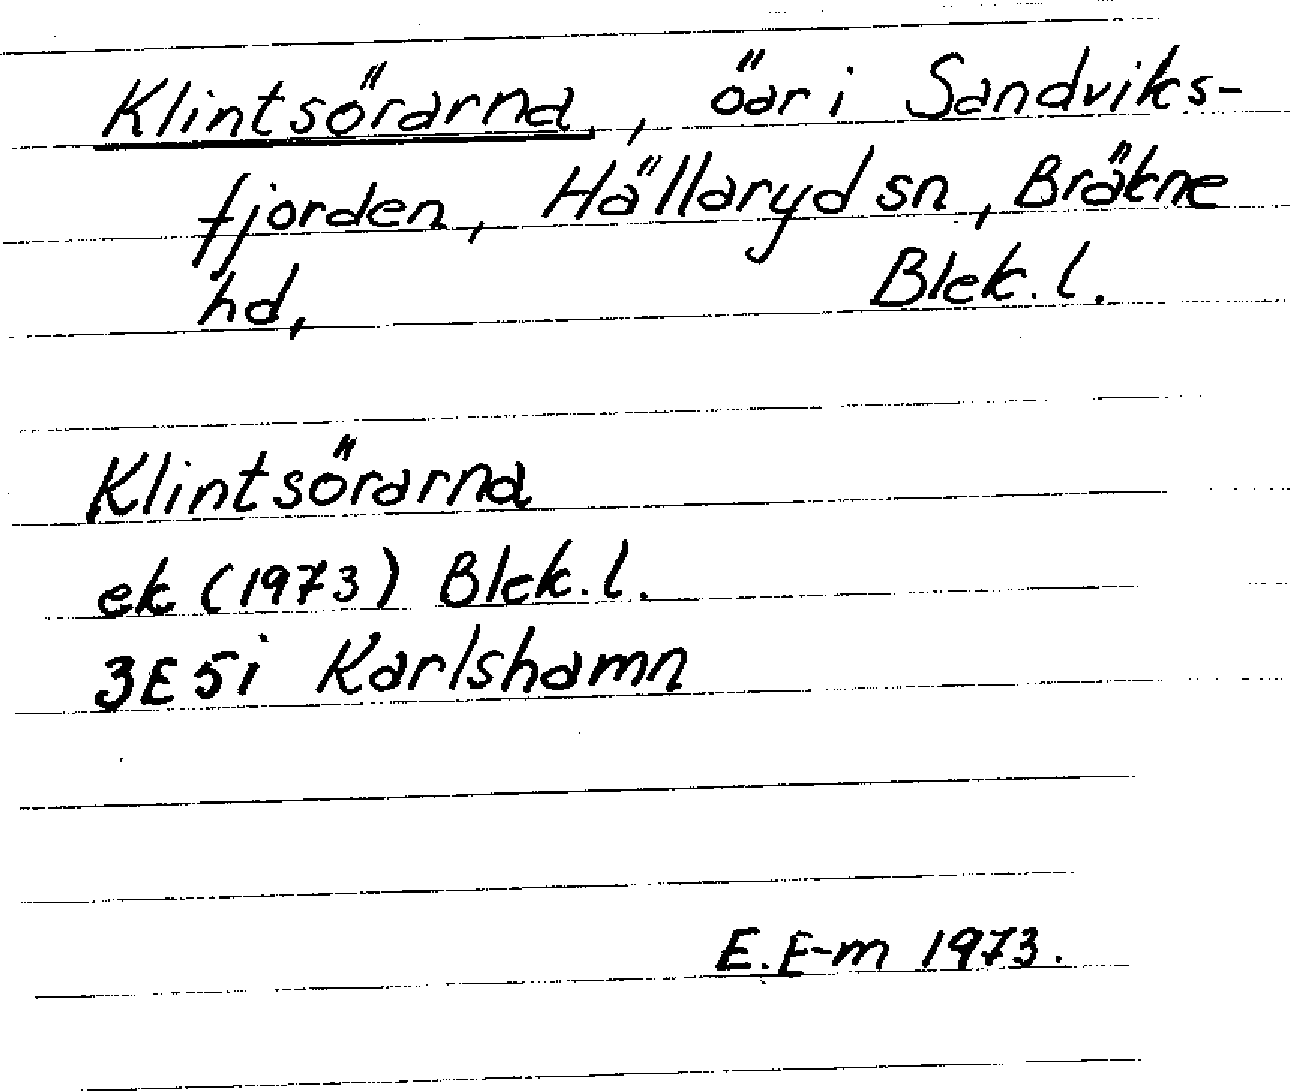 Klintsörarna, öar i Sandviks-
fjorden, Hällaryd sn, Bräkne
hd, Blek. l.
Klintsörarna
ek (1973) Blek. l.
3E 5i Karlshamn
E. E-m 1973.